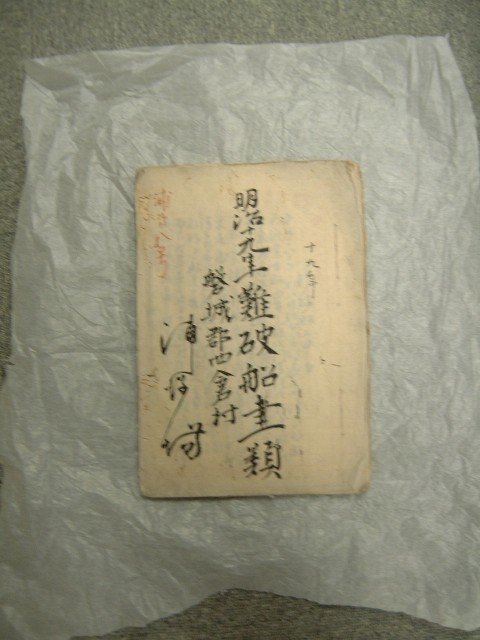 十九年
明治十九年難破船書類
磐城郡四倉村
浦役場